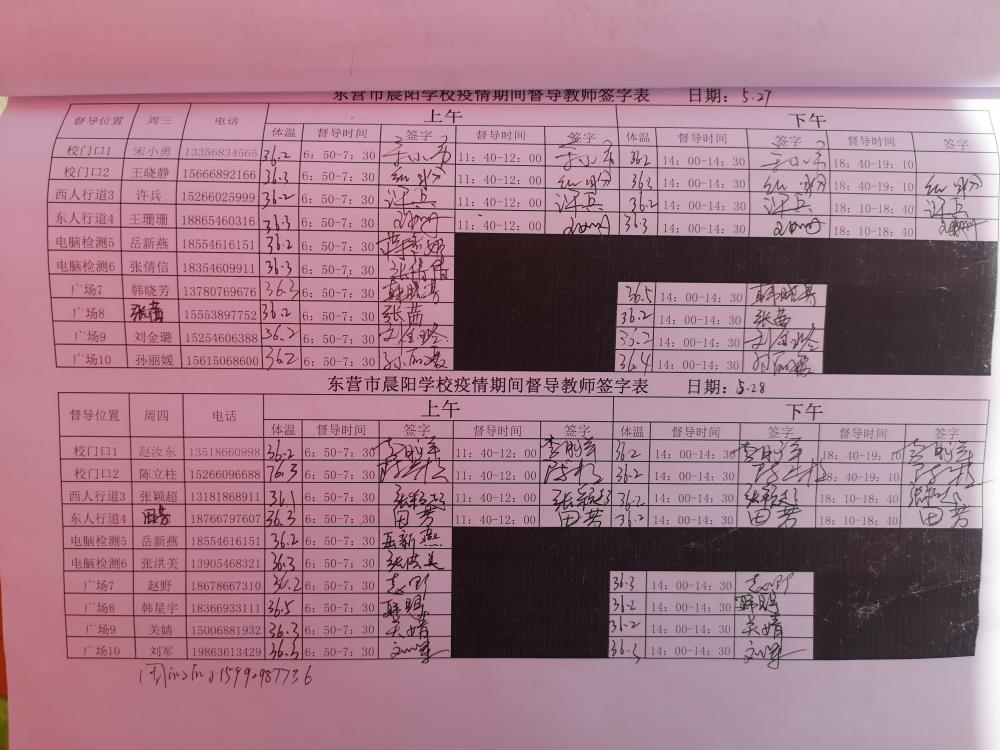 东营市晨阳学校疫情期间督导教师签字表 日期：5.27
督导位置 周三 电话 上午 下午
体温 督导时间 签字 督导时间 签字 体温 督导时间 签字 督导时间 签字
校门口1 宋小勇 13356834565 36.2 6：50-7：30 11：40-12：00 36.2 14：00-14：30 18：40-19：10
校门口2 王晓静 15666892166 36.3 6：50-7：30 11：40-12：00 36.3 14：00-14：30 18：40-19：10
西人行道3 许兵 15266025999 36.2 6：50-7：30 许兵 11：40-12：00 许兵 36.2 14：00-14：30 许兵 18：10-18：40 许兵
东人行道4 王珊珊 18865460316 36.3 6：50-7：30 11：40-12：00 36.3 14：00-14：30 18：10-18：40
电脑检测5 岳新燕 18554616151 36.2 6：50-7：30
电脑检测6 张倩信 18354609911 36.3 6：50-7：30 张倩信
广场7 韩晓芳 13780769676 36.3 6：50-7：30 韩晓芳 36.5 14：00-14：30 韩晓芳
广场8 张茜 15553897752 36.2 6：50-7：30 张茜 36.2 14：00-14：30 张茜
广场9 刘金璐 15254606388 36.2 6：50-7：30 刘金璐 36.2 14：00-14：30 刘金璐
广场10 孙丽媛 15615068600 36.2 6：50-7：30 孙丽媛 36.4 14：00-14：30 孙丽媛
东营市晨阳学校疫情期间督导教师签字表 日期：5.28
督导位置 周四 电话 上午 下午
体温 督导时间 签字 督导时间 签字 体温 督导时间 签字 督导时间 签字
校门口1 赵汝东 13518660998 36.2 6：50-7：30 11：40-12：00 36.2 14：00-14：30 18：40-19：10
校门口2 陈立柱 15266096688 36.3 6：50-7：30 11：40-12：00 36.2 14：00-14：30 18：40-19：10
西人行道3 张颖超 13181868911 36.1 6：50-7：30 张颖超 11：40-12：00 张颖超 36.2 14：00-14：30 张颖超 18：10-18：40 张颖超
东人行道4 田芳 18766797607 36.3 6：50-7：30 田芳 11：40-12：00 田芳 36.2 14：00-14：30 田芳 18：10-18：40 田芳
电脑检测5 岳新燕 18554616151 36.2 6：50-7：30 岳新燕
电脑检测6 张洪美 13905468321 36.3 6：50-7：30 张洪美
广场7 赵野 18678667310 36.2 6：50-7：30 赵野 36.3 14：00-14：30 赵野
广场8 韩星宇 18366933111 36.5 6：50-7：30 36.2 14：00-14：30
广场9 关婧 15006881932 36.3 6：50-7：30 关婧 36.2 14：00-14：30 关婧
广场10 刘军 19863613429 36.3 6：50-7：30 刘军 36.3 14：00-14：30 刘军